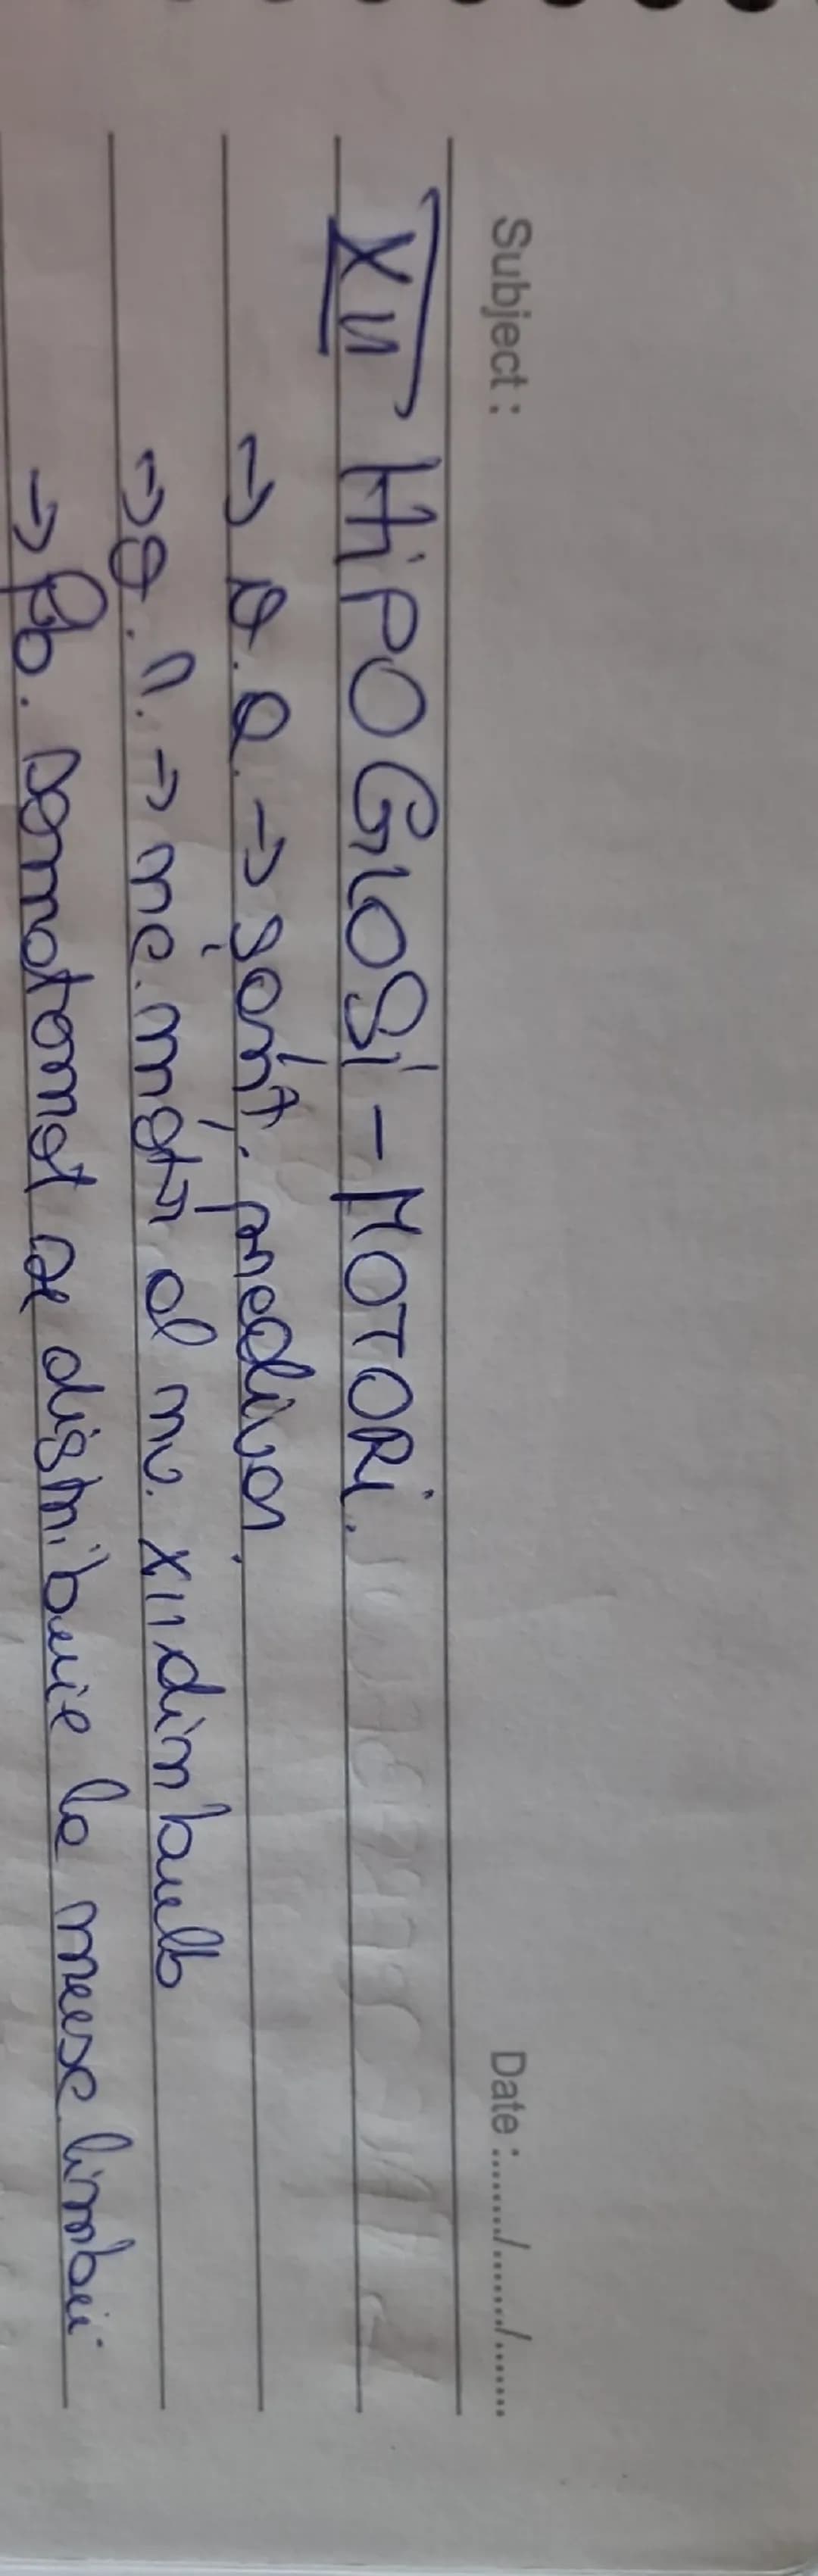 Subject : Date :......./......./.......
XII HiPOGLOSi - MOTORi.
→ O.A. → șanț. preoliva.
→ O.R. → nc. motor al nv. XII din bulb
→ fb. somatomot se distribuie la musc limbii.